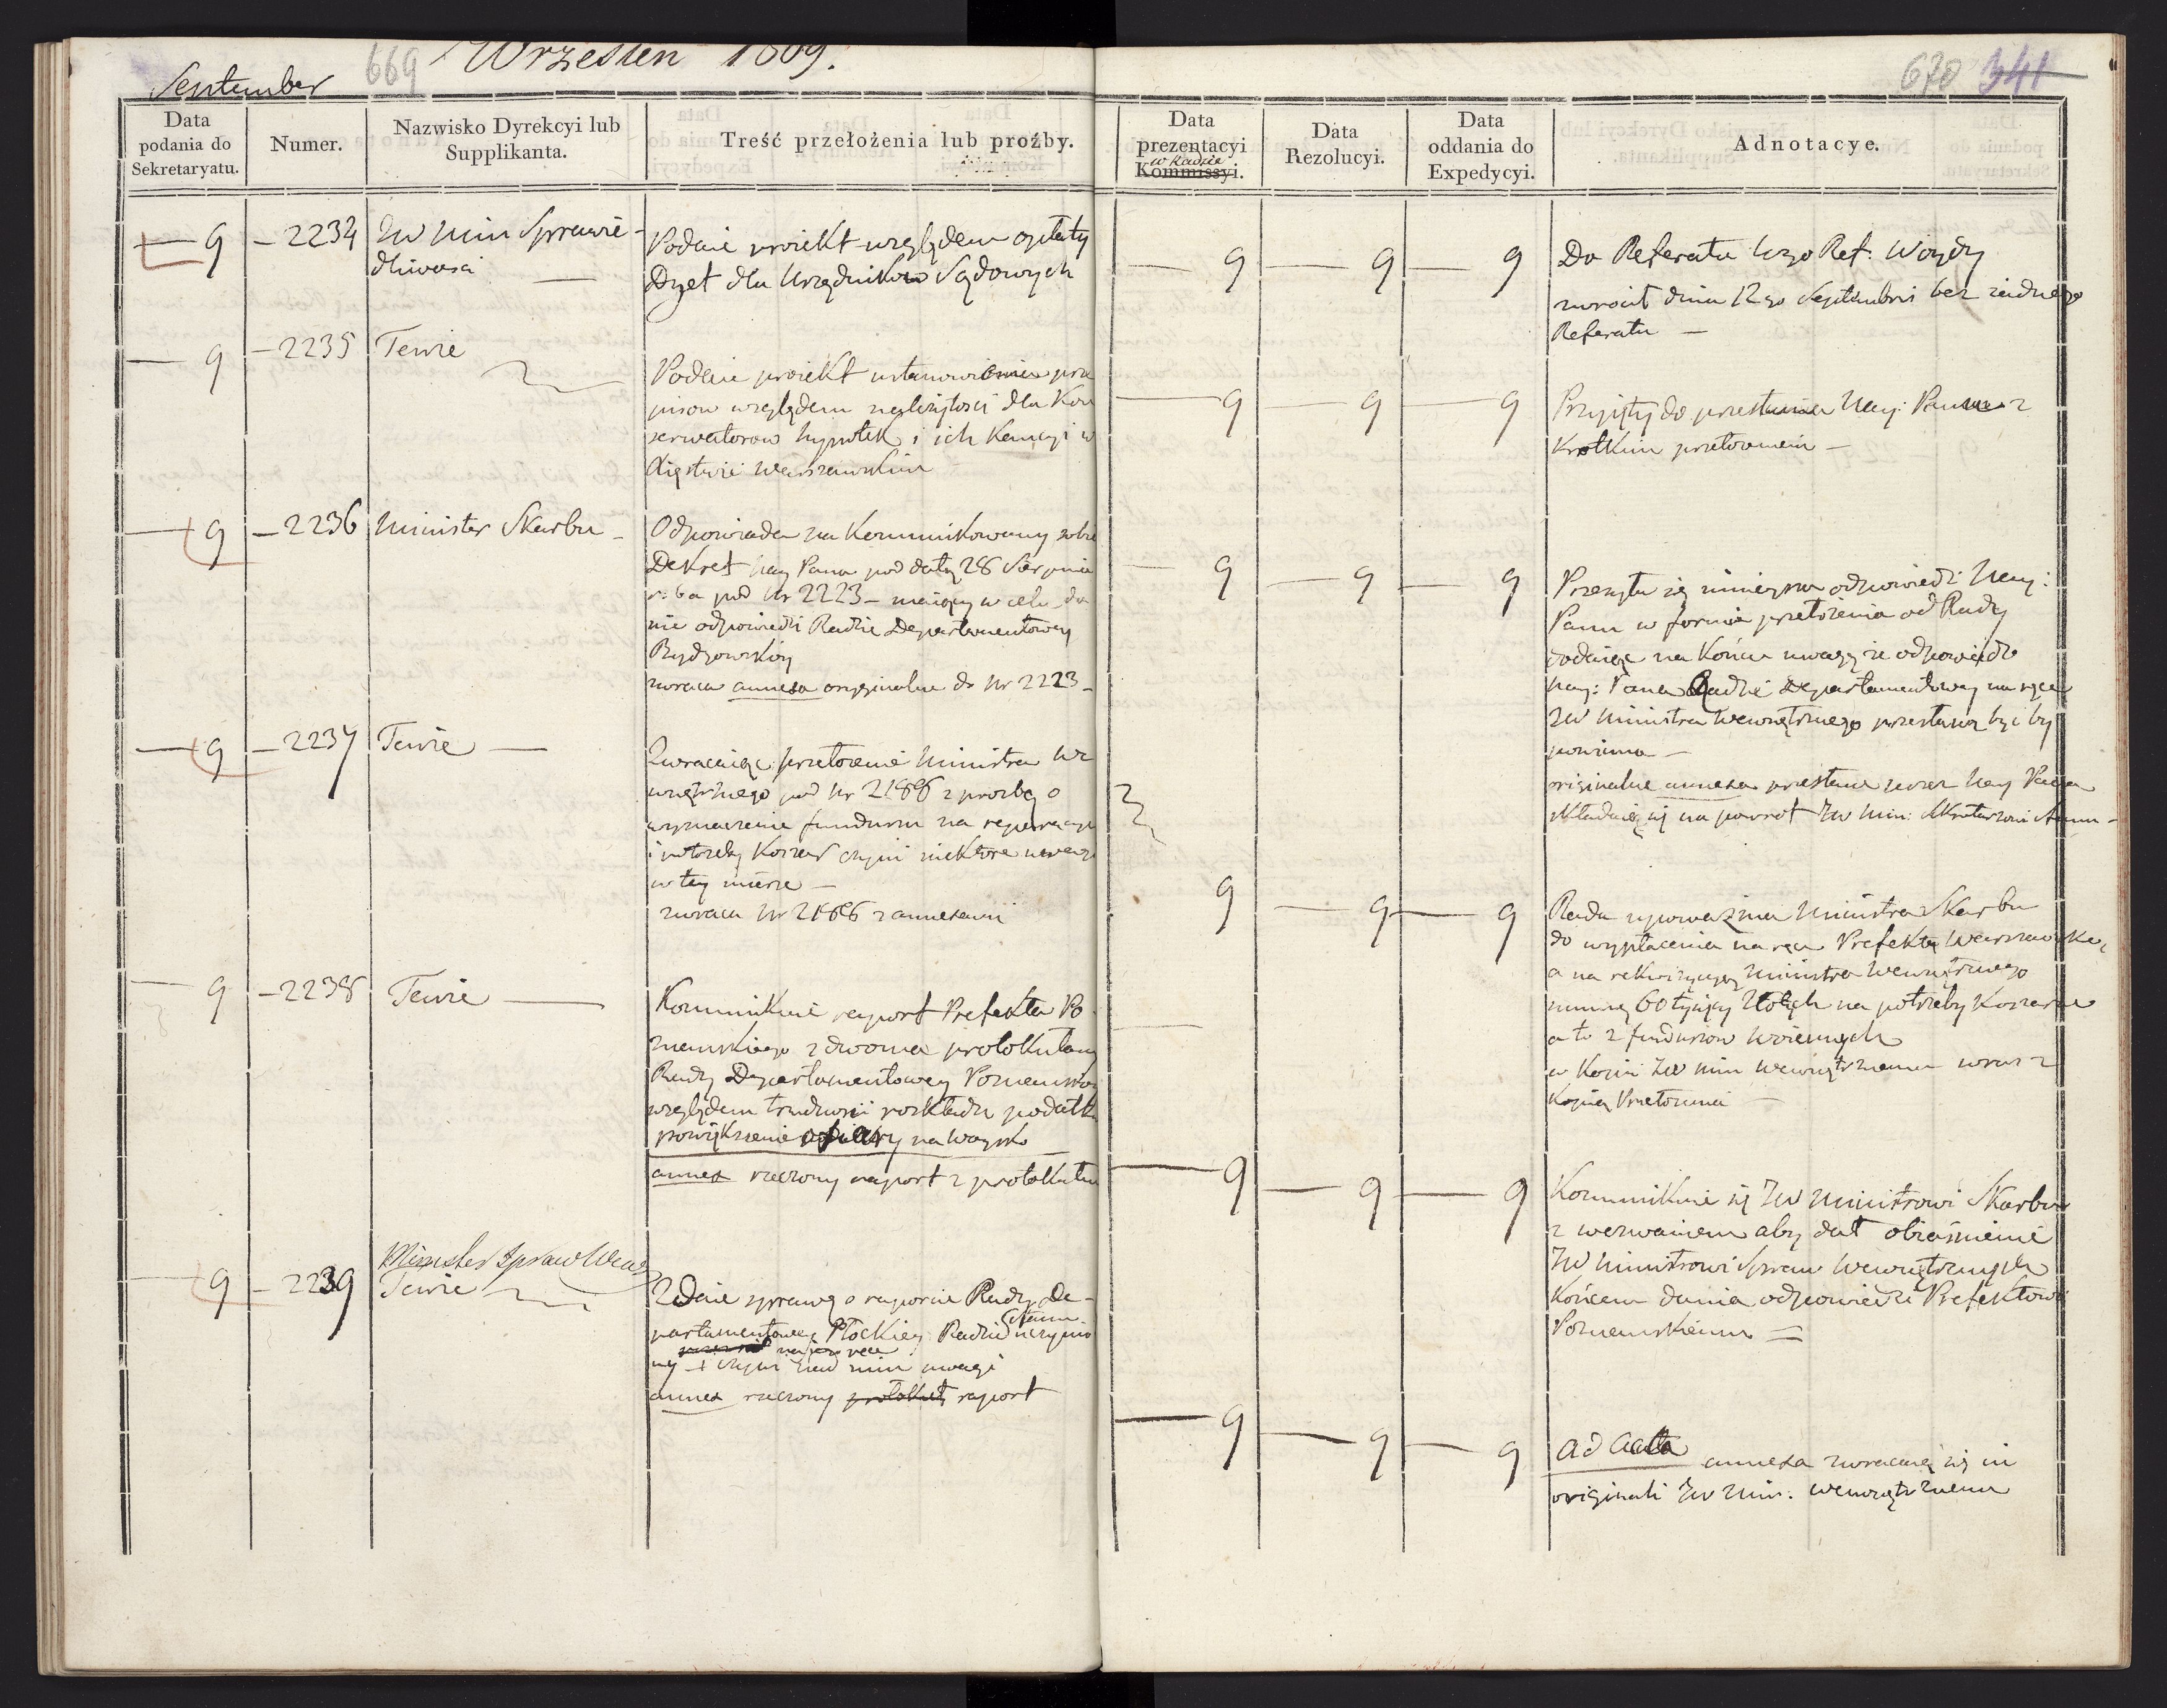 September 669 Wrzesień 1809.
670 341
Data podania do Sekretaryatu.
Numer.
Nazwisko Dyrekcyi lub Supplikanta.
Treść przełożenia lub proźby.
Data prezentacyi w Radzie Kommissyi.
Data Rezolucyi.
Data oddania do Expedycyi.
Adnotacye.
9 – 2234 JW Min Sprawie-
dliwości —
Podaie proiekt względem opłaty
Dyet dla Urzędników Sądowych
— 9 — 9 — 9
Do Referatu Wgo Ref. Woydy
zwrócił dnia 12go Septembris bez żadnego
Referatu —
— 9 – 2235 Tenże
Podaie proiekt ustanowienia prze
pisow względem należytości dla Kon
serwatorow hypotek i ich Kaucyi w
Xięstwie Warszawskim
— 9 — 9 — 9
Przyięty do przesłania Nay: Panu z
krotkim przełożeniem —
— 9 – 2236 Minister Skarbu –
Odpowiada na Kommunikowany sobie
Dekret Nay Pana pod datą 28 Sierpnia
r: b a pod Nr 2223 – maiący w celu da
nie odpowiedzi Radzie Departamentowey
Bydgowskiey
zwraca annexa oryginalne do Nr 2223 –
— 9 — 9 — 9
Przesyła się ninieysza odpowiedź Nay:
Panu w formie przełożenia od Rady
dodaiąc na Końcu uwagę że odpowiedź
Nay: Pana Radzie Departamentowey na ręce
JW Ministra Wewnętrznego przesłaną być by
powinna —
originalne annexa przesłane przez Nay Pana
składaią się na powrot JW Min: Sekretarzowi Stanu –
— 9 – 2237 Tenże —
Zwracaiąc przełożenie Ministra We
wnętrznego pod Nr 2186 z prozbą o
wyznaczenie funduszu na reperacye
i potrzeby Koszar czyni niektóre uwagi
w tey mierze –
zwraca Nr 2186 z annexami
9 — 9 — 9
Rada upoważnia Ministra Skarbu
do wypłacenia na ręce Prefekta Warszawskie
a na rekwizycyą Ministra Wewnętrznego
summę 60 tysięcy Złotych na potrzeby Koszarne
a to z funduszow woiennych
w Kopii JW Min Wewnętrznemu wraz z
Kopią Przełożenia —
— 9 – 2238 Tenże ——
Kommunikuie raport Prefekta Po
znanskiego z dwoma protokułami
Rady Departamentowey Poznańskiey
względem trudności rozkładu podatku
powiększenie ofiary na Woysko
annex rzeczony raport z protokułem
— 9 — 9 — 9
Kommunikuie się JW Ministrowi Skarbu
z wezwaniem aby dał obiaśnienie
JW Ministrowi Spraw Wewnętrznych
Końcem dania odpowiedzi Prefektowi
Poznanskiemu =
— 9 – 2239 Minister Spraw Wew
Tenże
Zdaie sprawę o raporcie Rady De-
partamentowey Płockiey Radzie Stanu uczynio
ny – i czyni nad nim uwagi
annex rzeczony protokuł raport
— 9 — 9 — 9
Ad Acta
annexa zwracaią się in
originali JW Min. Wewnętrznemu